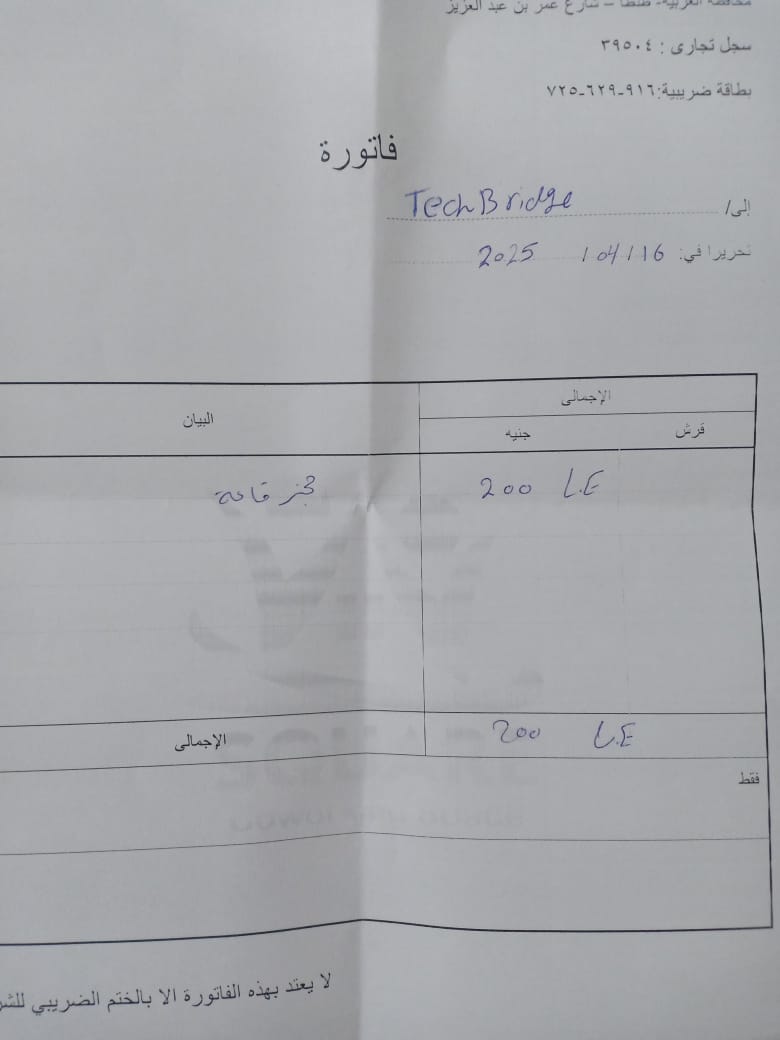 محافظة الغربية- طنطا – شارع عمر بن عبد العزيز
سجل تجارى : ٣٩٥٠٤
بطاقة ضريبية:٩١٦-٦٢٩-٧٢٥
فاتورة
إلى/ TechBridge
تحريرا في: 16/04/ 2025
الإجمالى
قرش جنيه البيان
200 L.E حجز قاعة
200 L.E الإجمالى
فقط
لا يعتد بهذه الفاتورة الا بالختم الضريبي